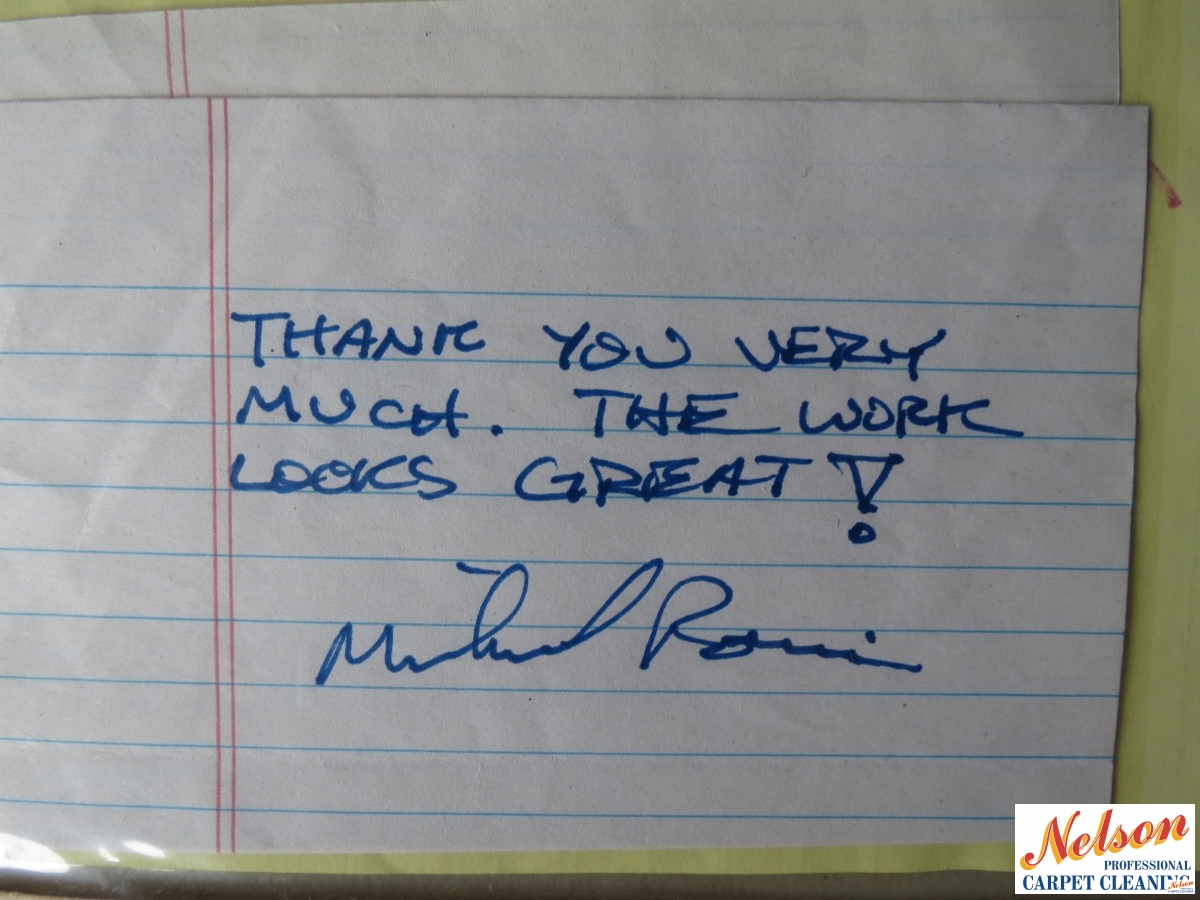 THANK YOU VERY
MUCH. THE WORK
LOOKS GREAT!
Michael
Nelson
PROFESSIONAL
CARPET CLEANING
Nelson